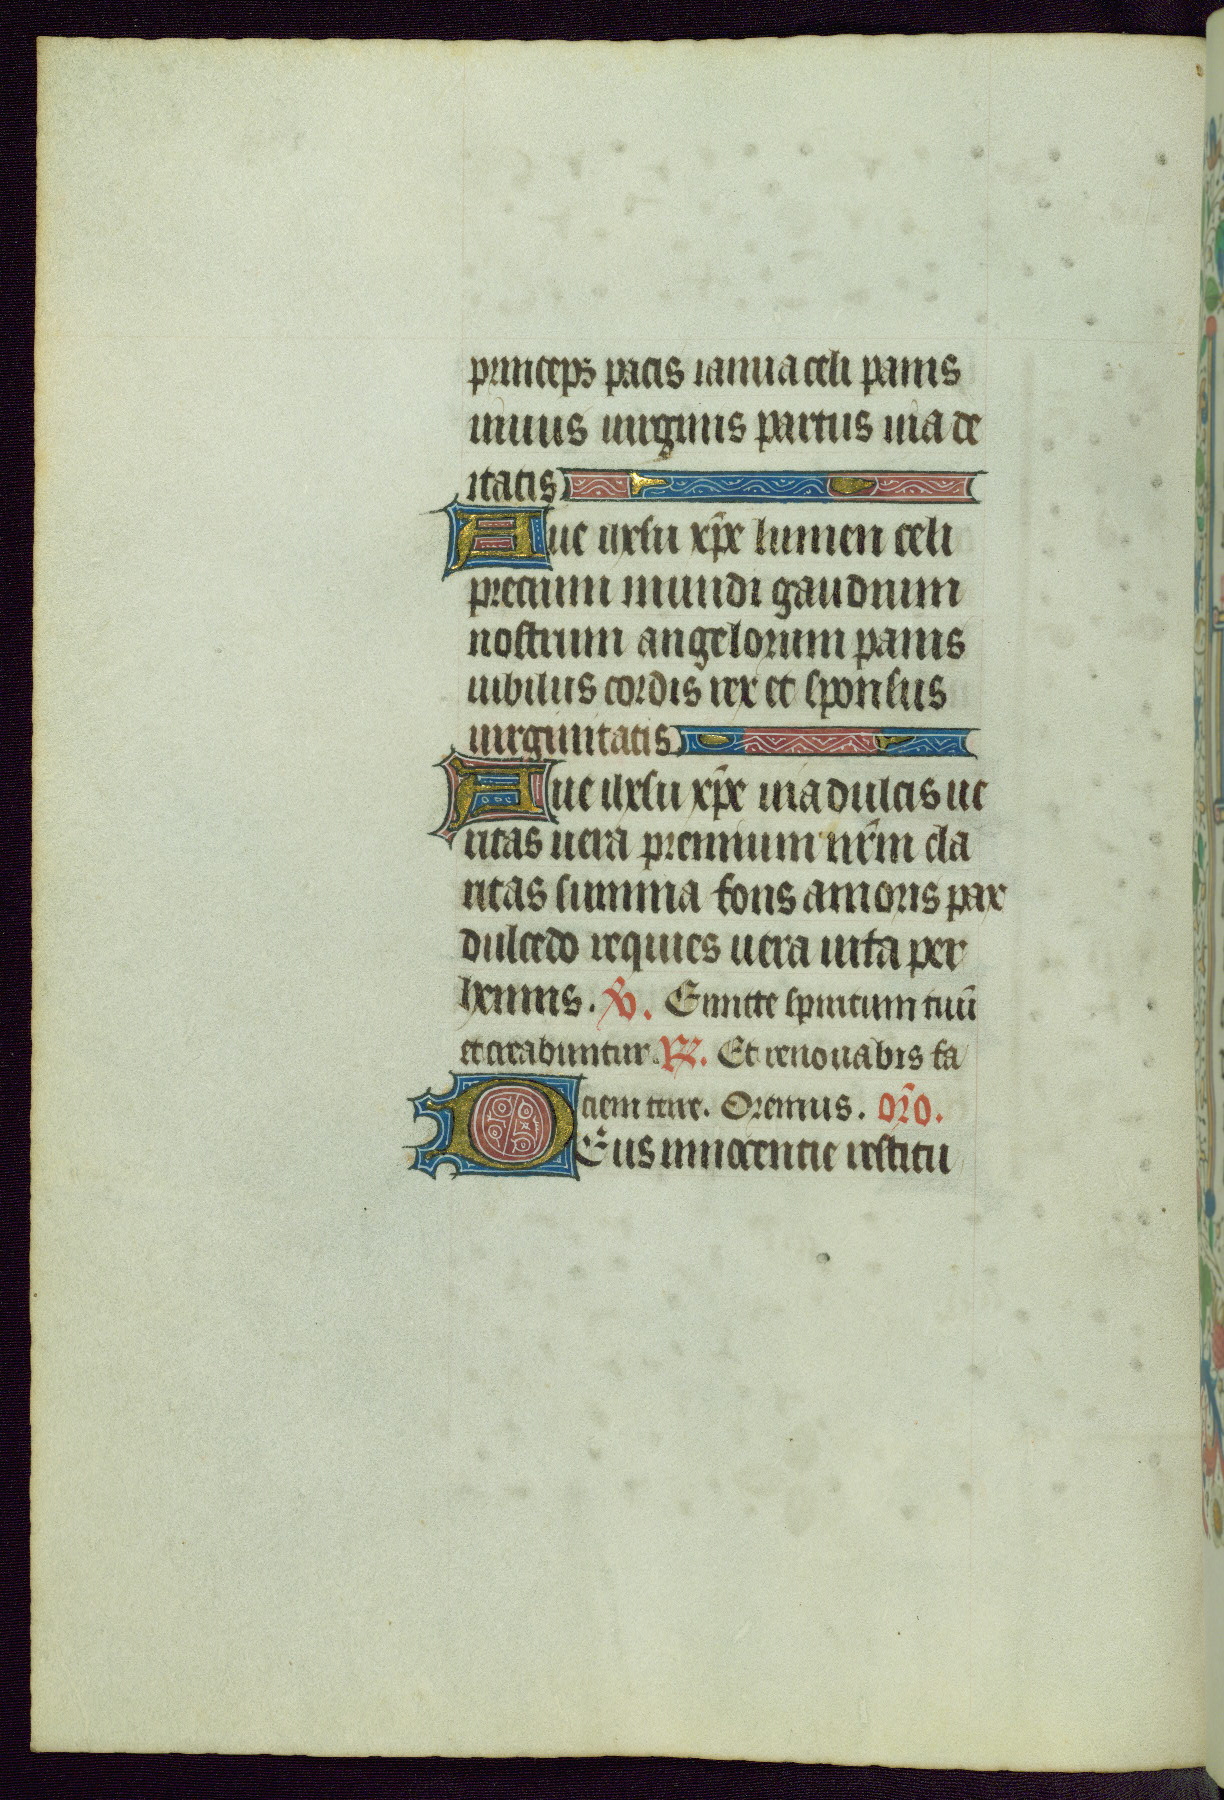 princeps pacis ianua celi panis
uiuus uirginis partus uia de
itatis
Aue ihesu xpe lumen celi
precium mundi gaudium
nostrum angelorum panis
iubilus cordis rex et sponsus
uirginitatis
Aue ihesu xpe uia dulcis ue
ritas uera premium nr̄m cla
ritas summa fons amoris pax
dulcedo requies uera uita per
hennis. V. Emitte spiritum tuū
et creabuntur. R. Et renouabis fa
ciem terre. Oremus. or̄o.
Deus innocentie restitu